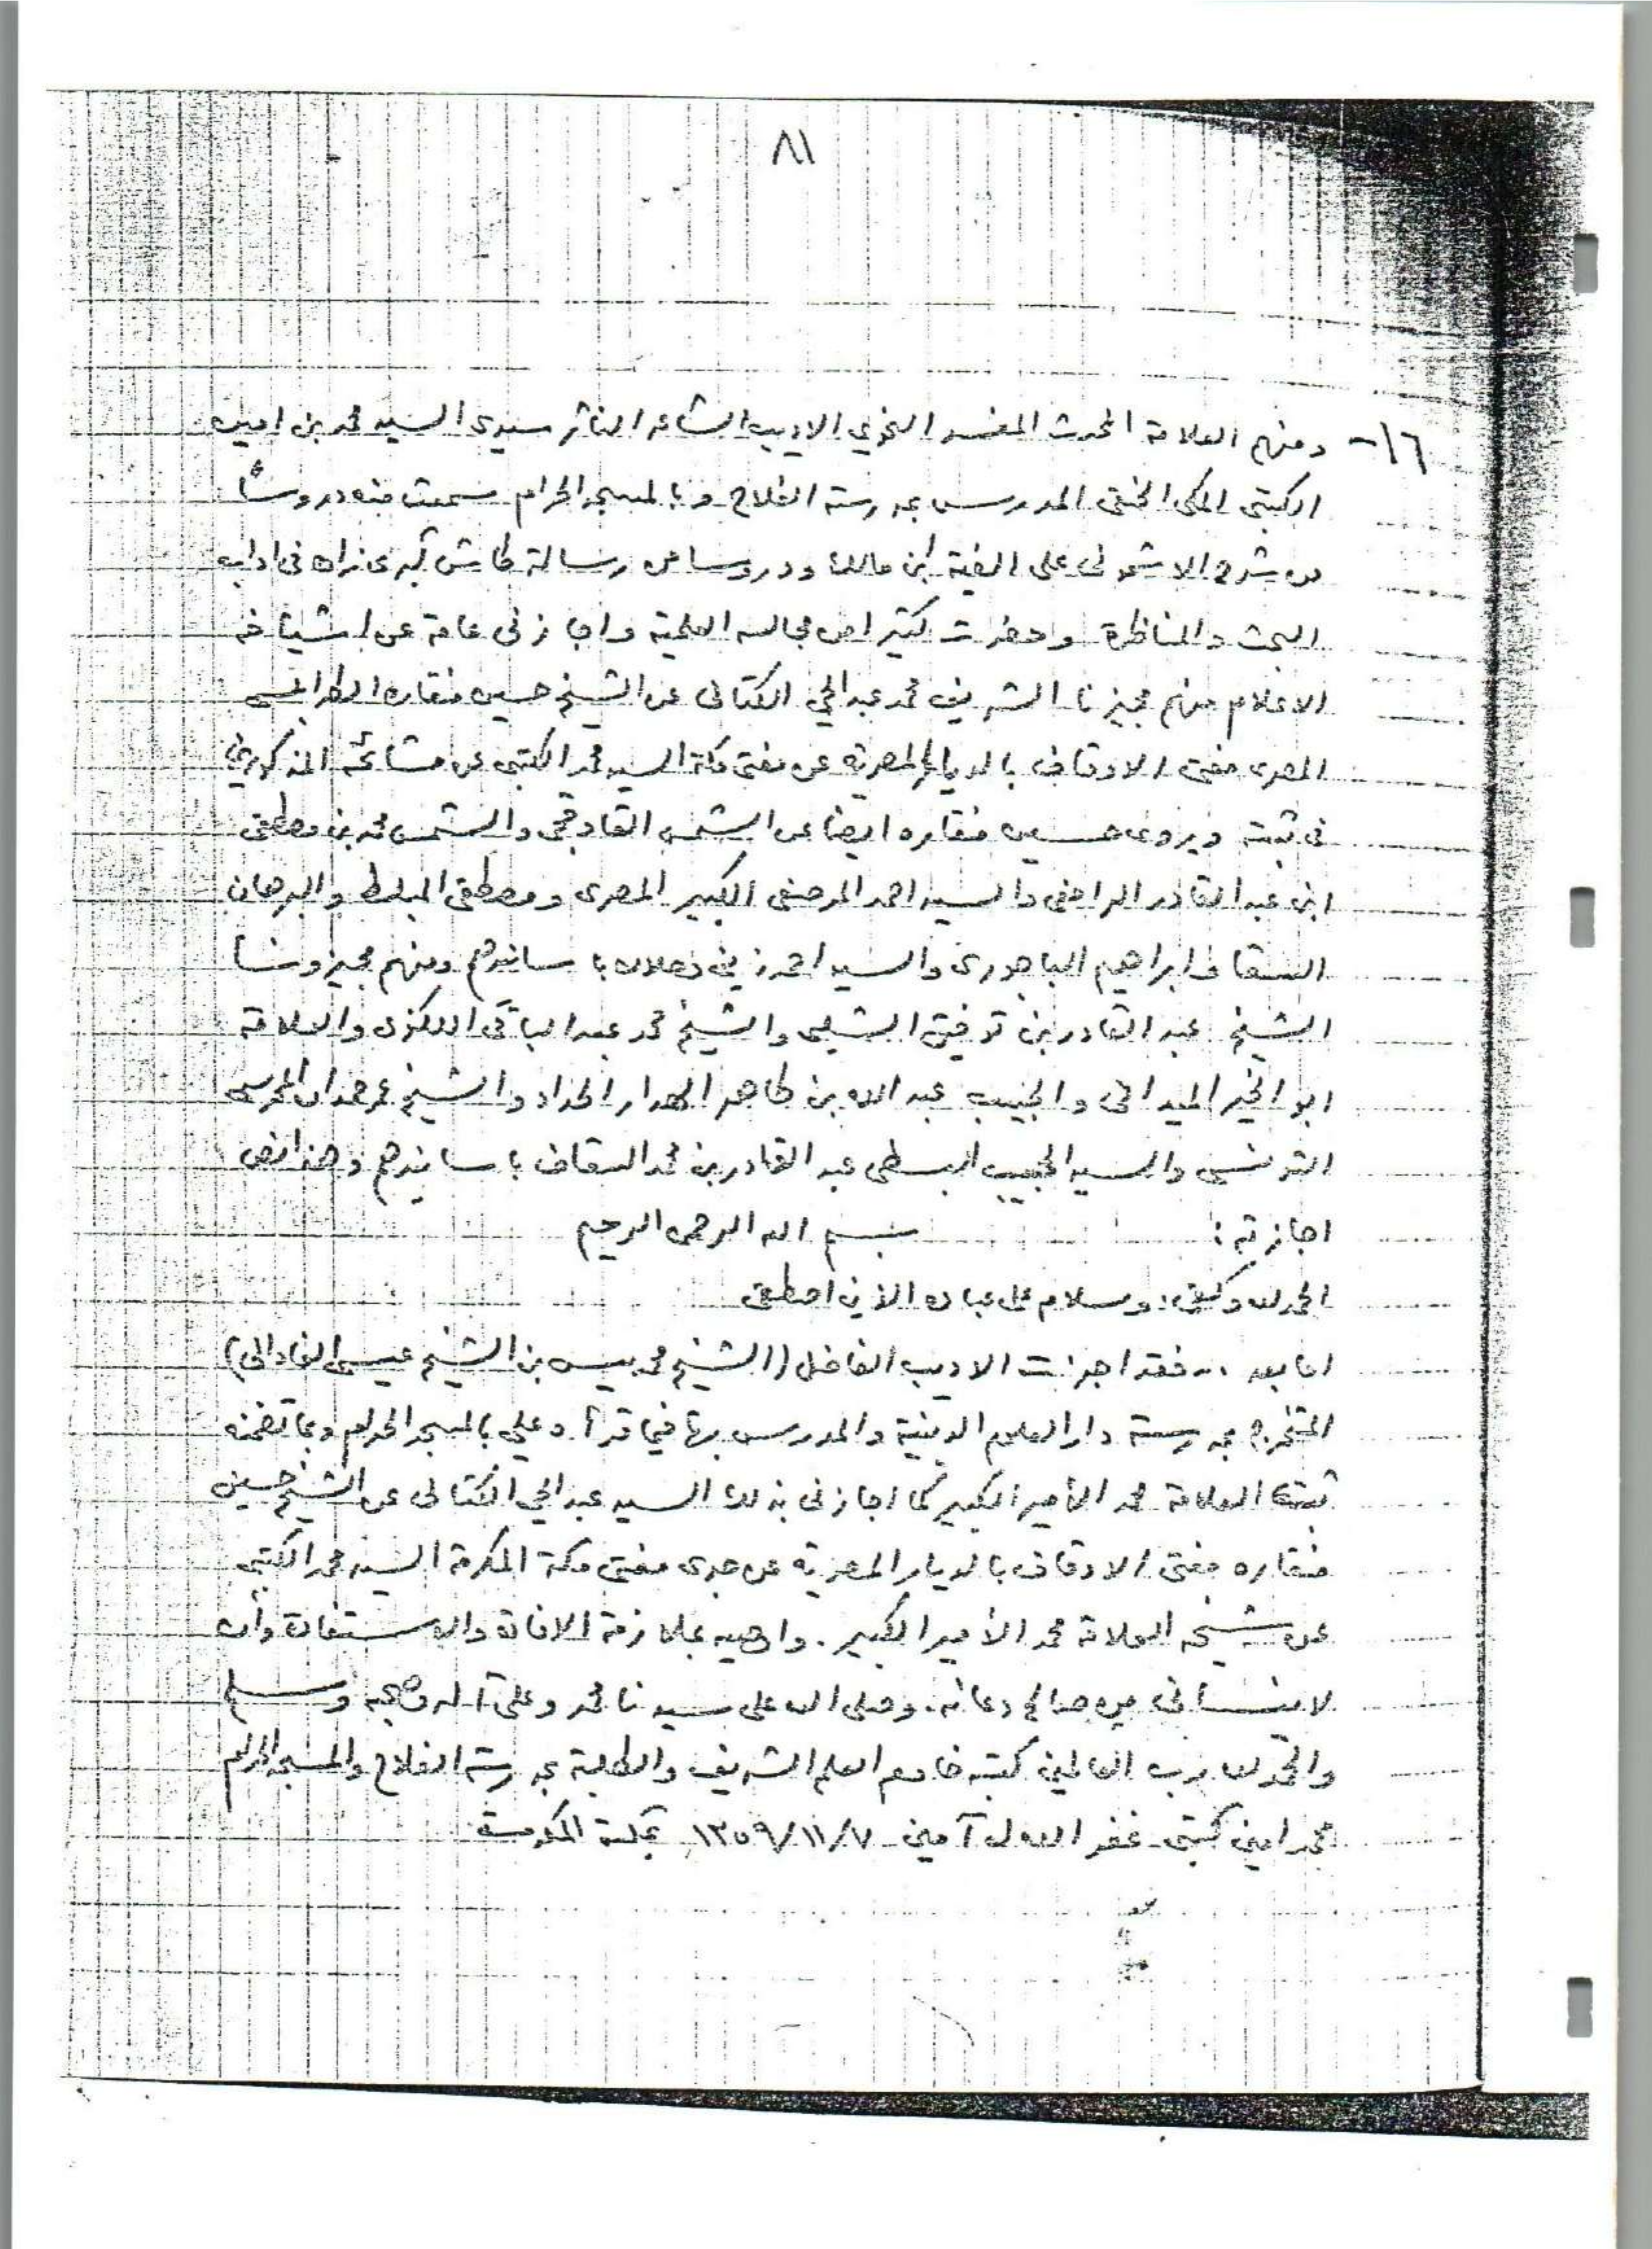 ٨١
١٦- ومنهم العلامة المحدث المفسر النحوي الاديب الشاعر الناثر سيدى السيد محمد بن امين
الكتبى المكى الحنفى المدرس بمدرسة الفلاح وبالمسجد الحرام سمعت منه دروساً
من شرح الاشمونى على الفية ابن مالك ودروسا من رسالة طاش كبرى زاده فى اداب
البحث والمناظرة وحضرت كثيرا من مجالسه العلمية واجازنى عامة عن اشياخه
الاعلام منهم مجيزنا الشريف محمد عبدالحي الكتانى عن الشيخ حسين منقاره الطرابلسى
المصرى مفتى الاوقاف بالديار المصرية عن مفتى مكة السيد محمد الكتبى عن مشائخه المذكورين
فى ثبته ويروى حسين منقاره ايضا عن الشمس القاوقجى والشمس محمد بن مصطفى
ابن عبد القادر الرافعى والسيد احمد المرصفى الكبير المصرى ومصطفى المبلط والبرهان
السقا وابراهيم الباجورى والسيد احمد زينى دحلان باسانيدهم ومنهم مجيزونا
الشيخ عبد القادر بن توفيق الشلبى والشيخ محمد عبد الباقى اللكنوى والعلامة
ابو الخير الميدانى والحبيب عبد الله بن طاهر الهدار الحداد والشيخ عمر حمدان المحرسى
التونسى والسيد الحبيب عبد القادر بن محمد السقاف باسانيدهم وهذا نص
اجازته : بسم الله الرحمن الرحيم
الحمد لله وكفى وسلام على عباده الذين اصطفى
اما بعد .. فقد اجزت الاديب الفاضل (الشيخ محمد يس بن الشيخ عيسى الفادانى)
المتخرج بمدرسة دار العلوم الدينية والمدرس بها فيما قرأه علي بالمسجد الحرام وبما تضمنه
ثبت العلامة محمد الأمير الكبير كما اجازنى بذلك السيد عبد الحي الكتانى عن الشيخ حسين
منقاره مفتى الاوقاف بالديار المصرية عن جدى مفتى مكة المكرمة السيد محمد الكتبى
عن شيخه العلامة محمد الأمير الكبير . واوصيه بملازمة الافادة والاستفادة وأن
لا ينسانى من صالح دعائه . وصلى الله على سيدنا محمد وعلى آله وصحبه وسلم
والحمد لله رب العالمين كتبه خادم العلم الشريف والطلبة بمدرسة الفلاح والمسجد الحرام
محمد امين كتبى غفر الله له آمين ١٣٥٩/١١/٧ بمكة المكرمة